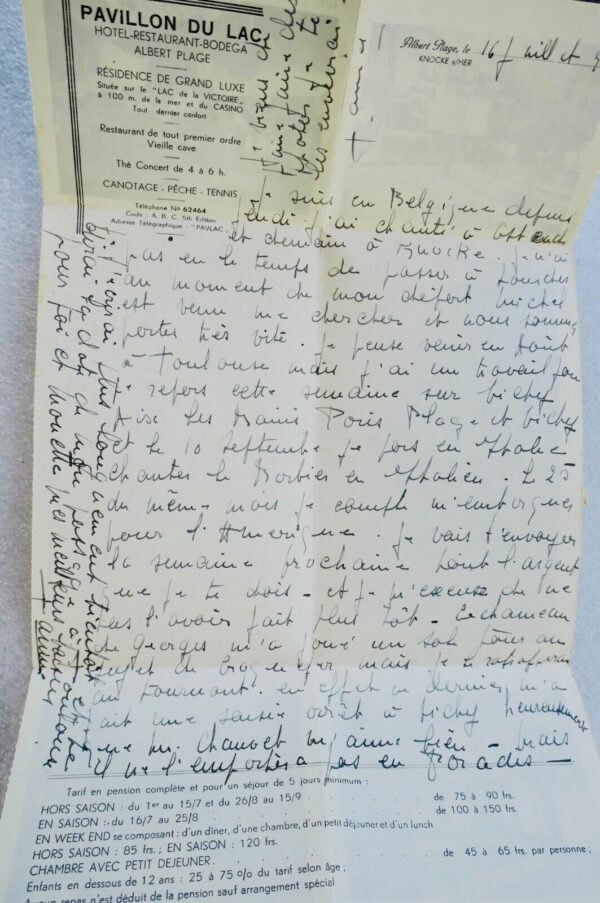 PAVILLON DU LAC
HOTEL-RESTAURANT-BODEGA
ALBERT PLAGE
RÉSIDENCE DE GRAND LUXE
Située sur le "LAC de la VICTOIRE"
à 100 m. de la mer et du CASINO
Tout dernier confort
Restaurant de tout premier ordre
Vieille cave
Thé Concert de 4 à 6 h.
CANOTAGE - PÊCHE - TENNIS
Téléphone No 62464
Code : A, B, C, 5th Edition
Adresse Télégraphique : "PAVLAC"
Albert Plage, le 16 juillet
KNOCKE s/MER
Je viens de
faire faire des
photos je te
les enverrai
Je suis en Belgique depuis
jendi. j'ai chanté à Ostende
et demain à Knocke. Je n'ai
pas eu le temps de passer à
au moment de mon départ Michel
est venu me chercher et nous sommes
partis très vite. Je pense venir en Août
à Toulouse mais j'ai un travail fou
je repars cette semaine sur Vichy
Aix les Bains Paris Plage et Vichy
et le 10 septembre je pars en Italie
chanter le Barbier en Italien. Le 25
du même mois je compte m'embarquer
pour l'Amérique. Je vais t'envoyer
la semaine prochaine tout l'argent
que je te dois - et je m'excuse de ne
pas l'avoir fait plus tôt - Le chameau
de Georges m'a joué un sale tour au
sujet de mais je le
au tournant. en effet ce dernier m'a
fait une saisie arrêt à Vichy heureusement
que Mr. Chauvet m'aime bien - mais
il ne l'emportera pas en Paradis -
Je t'écrirai plus longuement bientôt
dirai la date de mon passage à Toulouse
pour toi et Mouette mes meilleurs
Tarif en pension complète et pour un séjour de 5 jours minimum :
HORS SAISON : du 1er au 15/7 et du 26/8 au 15/9 . . . . de 75 à 90 frs.
EN SAISON : du 16/7 au 25/8 . . . . de 100 à 150 frs.
EN WEEK END se composant : d'un dîner, d'une chambre, d'un petit déjeuner et d'un lunch
HORS SAISON : 85 frs ; EN SAISON : 120 frs.
CHAMBRE AVEC PETIT DEJEUNER. . . . de 45 à 65 frs. par personne ;
Enfants en dessous de 12 ans : 25 à 75 o/o du tarif selon âge ;
Aucun repas n'est déduit de la pension sauf arrangement spécial